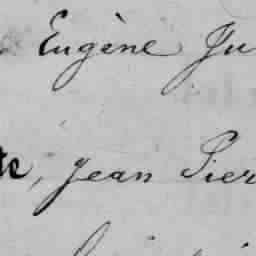 Eugène Ju
te, Jean Pier